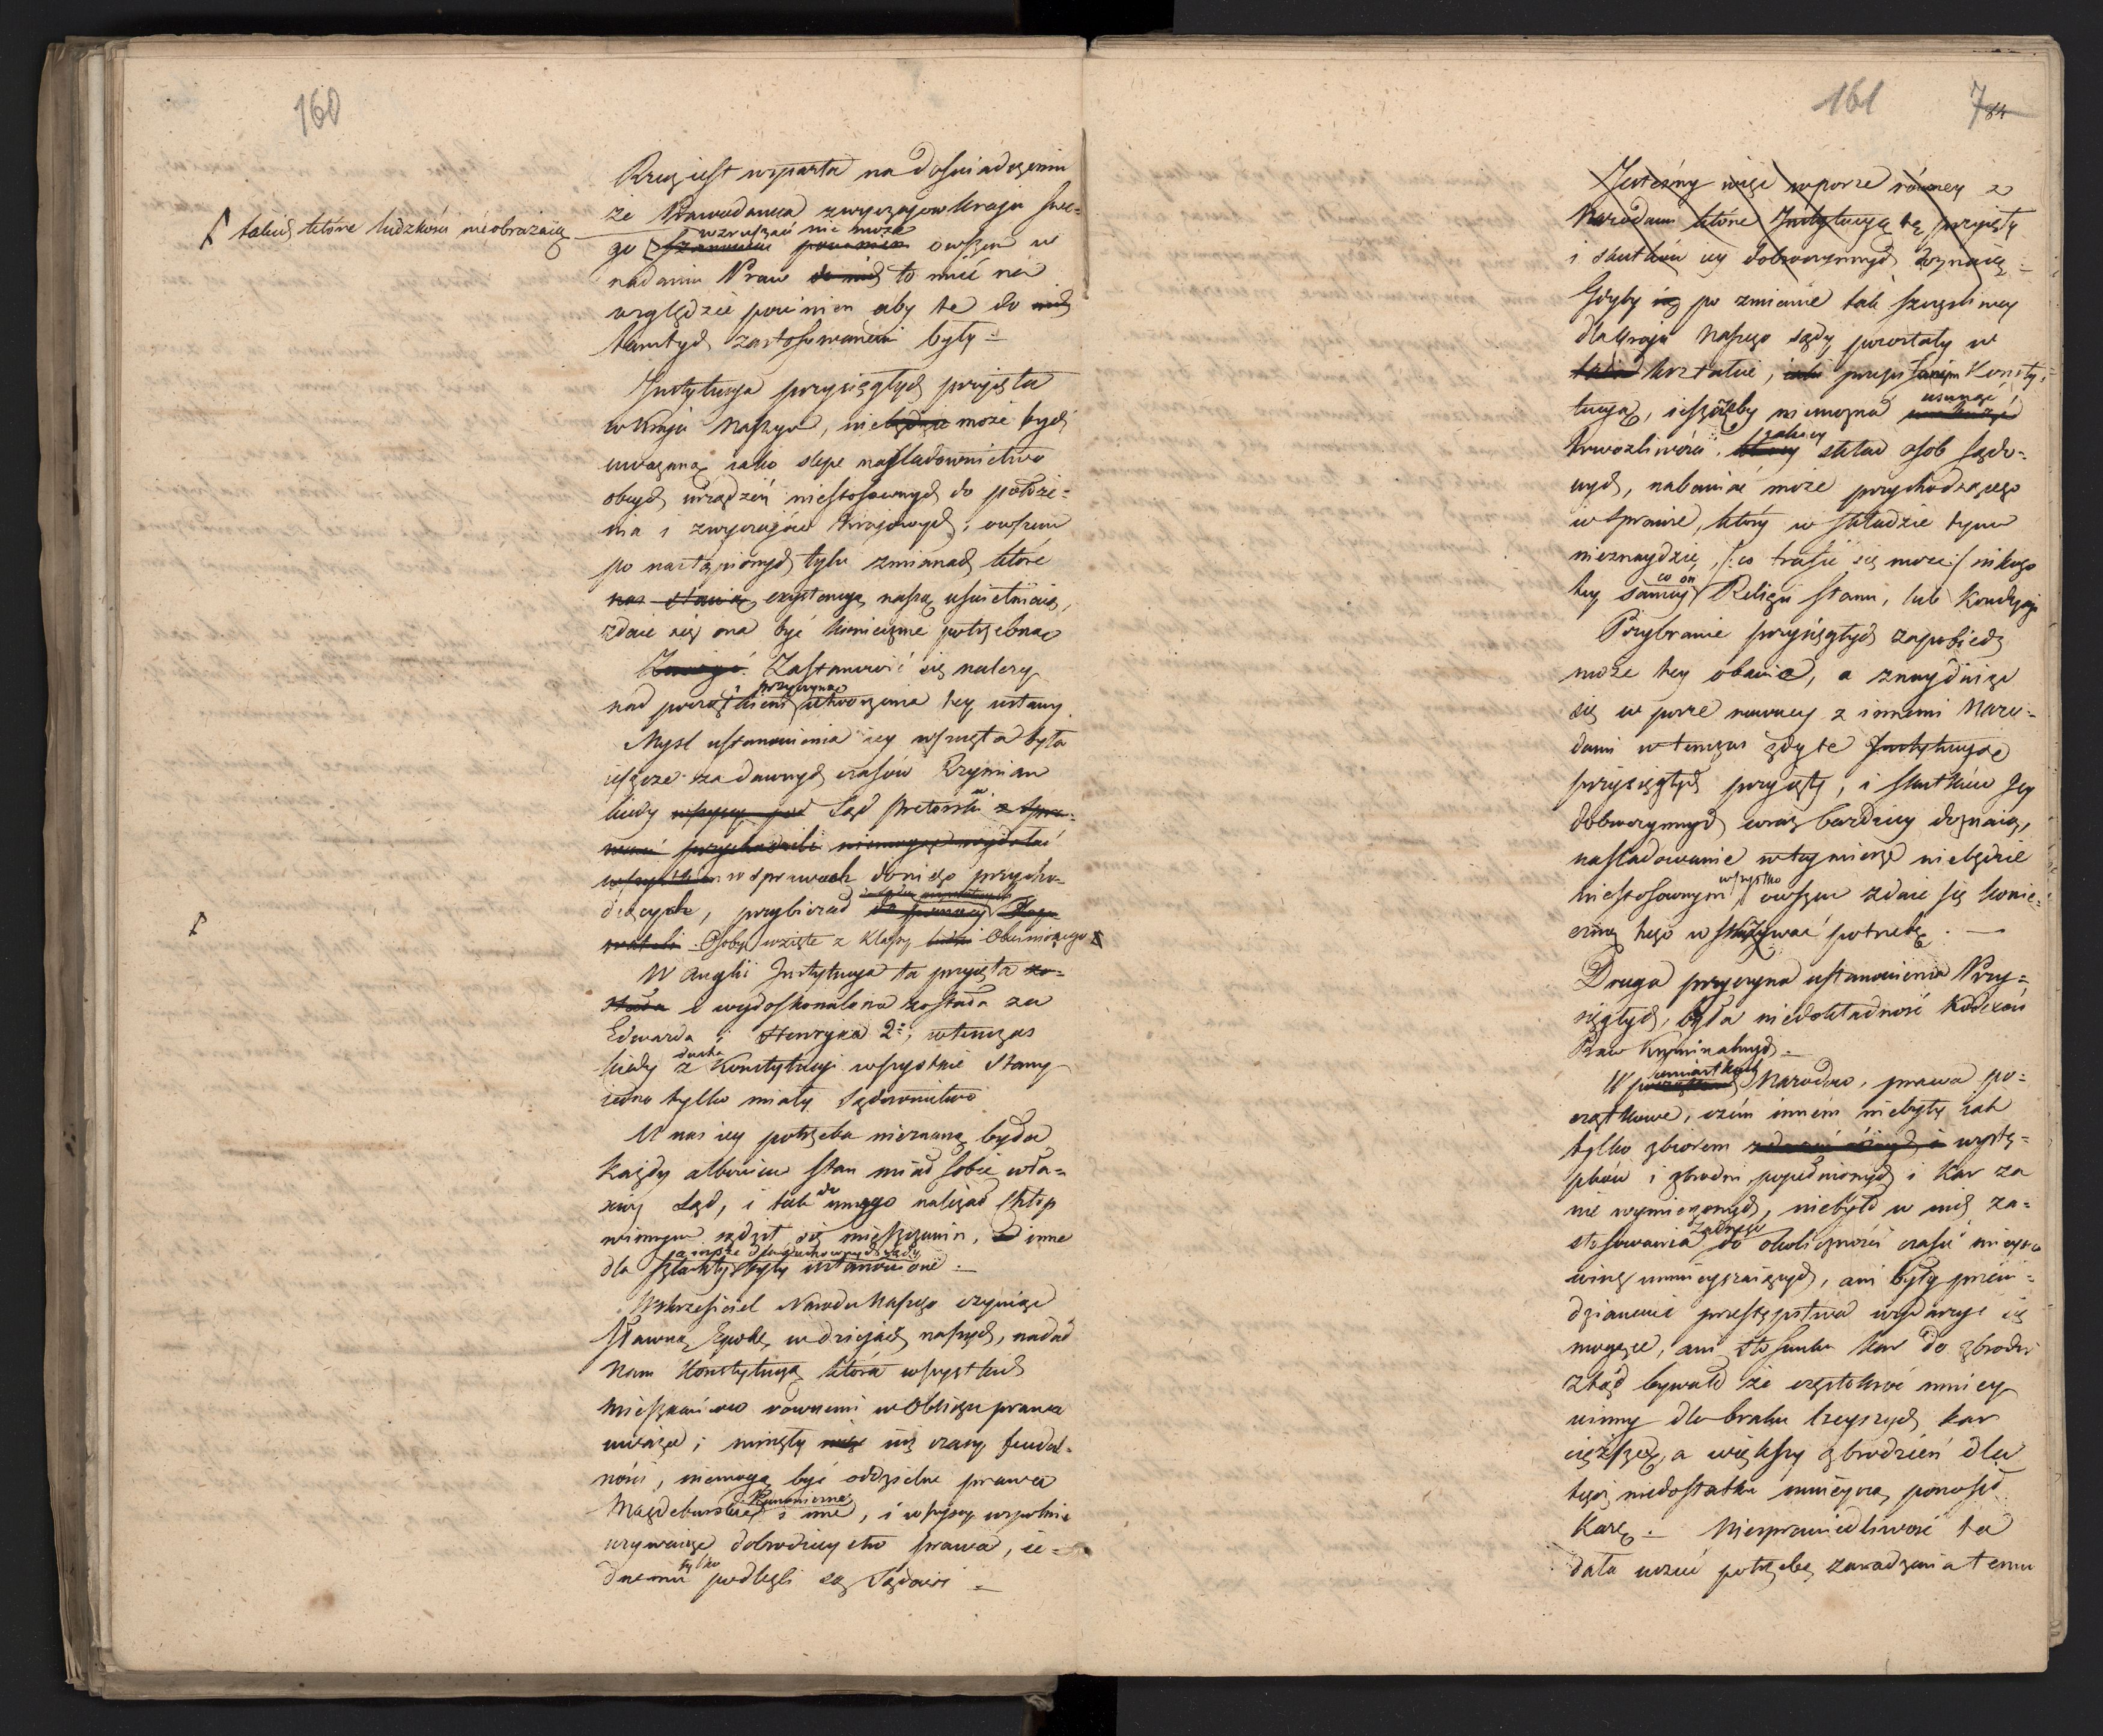 160
Rzecz iest wsparta na doświadczeniu
że Prawodawca zwyczaiow kraju swe-
takich ktore ludzkości nieobrażaią
wzruszać nie może
go szanować powinien owszem w
nadaniu Praw do nich to mieć na
względzie powinien aby te do nich
tamtych zastosowanemi były =
Instytucya przysięgłych przyięta
w Kraju Naszym, niebędzie może bydź
uważaną iako slepe nasladownictwo
obcych urządzeń niestosownych do położe=
nia i zwyczajów krajowych; owszem
po nastąpionych tylu zmianach które
nas stawią exystencyą naszą uświetniaią,
zdaie się ona być koniecznie potrzebną
Zastanowić się należy
i przyczyną
nad początkiem utworzenia tey ustawy
Mysl ustanowienia iey wszczęta była
ieszcze za dawnych czasów Rzymian
kiedy wszyscy pod Sąd Pretorski z spra-
wami przychodzili niemogąc wydołać
wszystkim w sprawach doniego przycho-
dzących, przybierał do pomocy
Osoby wzięte z Klassy ludzi
W Anglii Instytucya ta przyięta zo=
stała i wydoskonalona została za
Edwarda i Henryka 2o, wtenczas
ducha
kiedy z Konstytucyi wszystkie Stany
iedno tylko miały Sądownictwo
U nas iey potrzeba nieznaną była
każdy albowiem stan miał sobie wła=
sciwy Sąd, i tak do innego należał chłop
winnym sądził się mieszczanin, a inne
dla szlachty były ustanowione =
Wskrzesiciel Narodu Naszego czyniąc
sławną Epokę w dziejach naszych, nadał
Nam Konstytucyą która wszystkich
Mieszkańców rownemi w Obliczu prawa
uważa; minęły więc iuż czasy feudal-
ności, niemogą być oddzielne prawa
Magdeburskie i inne, i wszyscy wspolnie
używaiąc dobrodzieystw prawa, ie=
tylko
dnemu podlegli są Sądowi =
161
7
84
Jesteśmy więc w porze równey z
Narodami które Instytucyą tę przyięły
i skutków iey dobroczynnych doznaią =
Gdyby iuż po zmianie tak szczęśliwey
dla Kraju Naszego sądy pozostały w
kształcie, przepisanym Konsty=
usunąć
tucyą, ieszczeby niemożna
trwożliwości. którey skład osób sądo=
wych, nabawiać może przychodzącego
w sprawie, który w składzie tym
nieznaydzie, /:co trafić się może:/ nikogo
co on
tey samey Religii stanu, lub kondycyi
Przybranie przysięgłych zapobiedz
może tey obawie, a znayduiąc
się w porze rowney z innemi Naro=
dami wtenczas gdy te Instytucyą
przysięgłych przyięły, i skutków Jey
dobroczynnych coraz bardziey doznaią,
nasladowanie w tey mierze niebędzie
wszystko
niestosownym, owszem zdaie się konie=
czną tego wskazywać potrzebę. —
Druga przyczyna ustanowienia Przy=
sięgłych, była niedokładność Kodexów
Praw Kryminalnych =
W początkach Narodów, prawa po=
czątkowe, czém inném niebyły iak
tylko zbiorem wystę=
pków i zbrodni popełnionych i Kar za
nie wymierzonych, niebyło w nich za=
żadnego
stosowania do okoliczności czasu mieysca
winę umnieyszaiących, ani były przewi=
dzianemi przestępstwa wydarzyć się
mogące, ani stosunku kar do zbrodni
ztąd bywało że częstokroć mniey
winny dla braku lżeyszych kar
cięższą, a większy zbrodzień dla
tegoż niedostatku mnieyszą ponosił
Karę. — Niesprawiedliwość ta
dała uczuć potrzebę zaradzenia temu